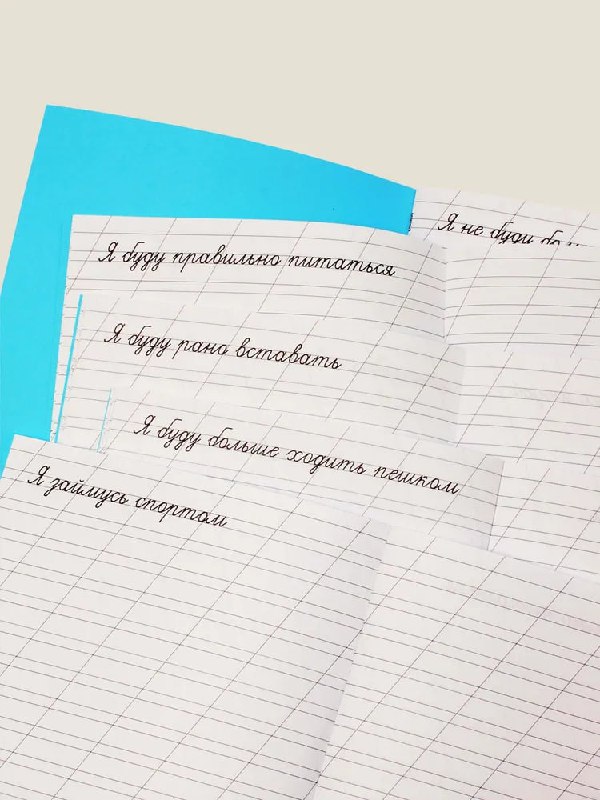 Я не буду
Я буду правильно питаться
Я буду рано вставать
Я буду больше ходить пешком
Я займусь спортом